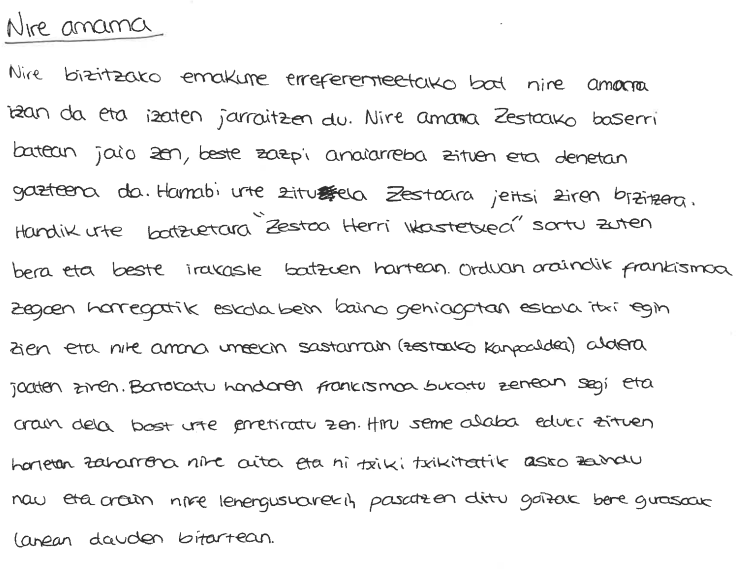 Nire amama
Nire bizitzako emakume erreferenteetako bat nire amama
izan da eta izaten jarraitzen du. Nire amama Zestoako baserri
batean jaio zen, beste zazpi anaiarreba zituen eta denetan
gazteena da. Hamabi urte zituela Zestoara jeitsi ziren bizitzera.
Handik urte batzuetara "Zestoa Herri Ikastetxea" sortu zuten
bera eta beste irakasle batzuen hartean. Orduan oraindik frankismoa
zegoen horregatik eskola bein baino gehiagotan eskola itxi egin
zien eta nire amama umeekin sastarrain (zestoako kanpoaldea) aldera
joaten ziren. Bataren frankismoa bukatu zenean segi eta
orain dela bost urte erretiratu zen. Hiru seme alaba eduki zituen
horietan zaharrena nire aita eta ni txiki txikitatik asko zaindu
nau eta orain nire lehengusuarekin pasatzen ditu goizak bere gurasoak
lanean dauden bitartean.